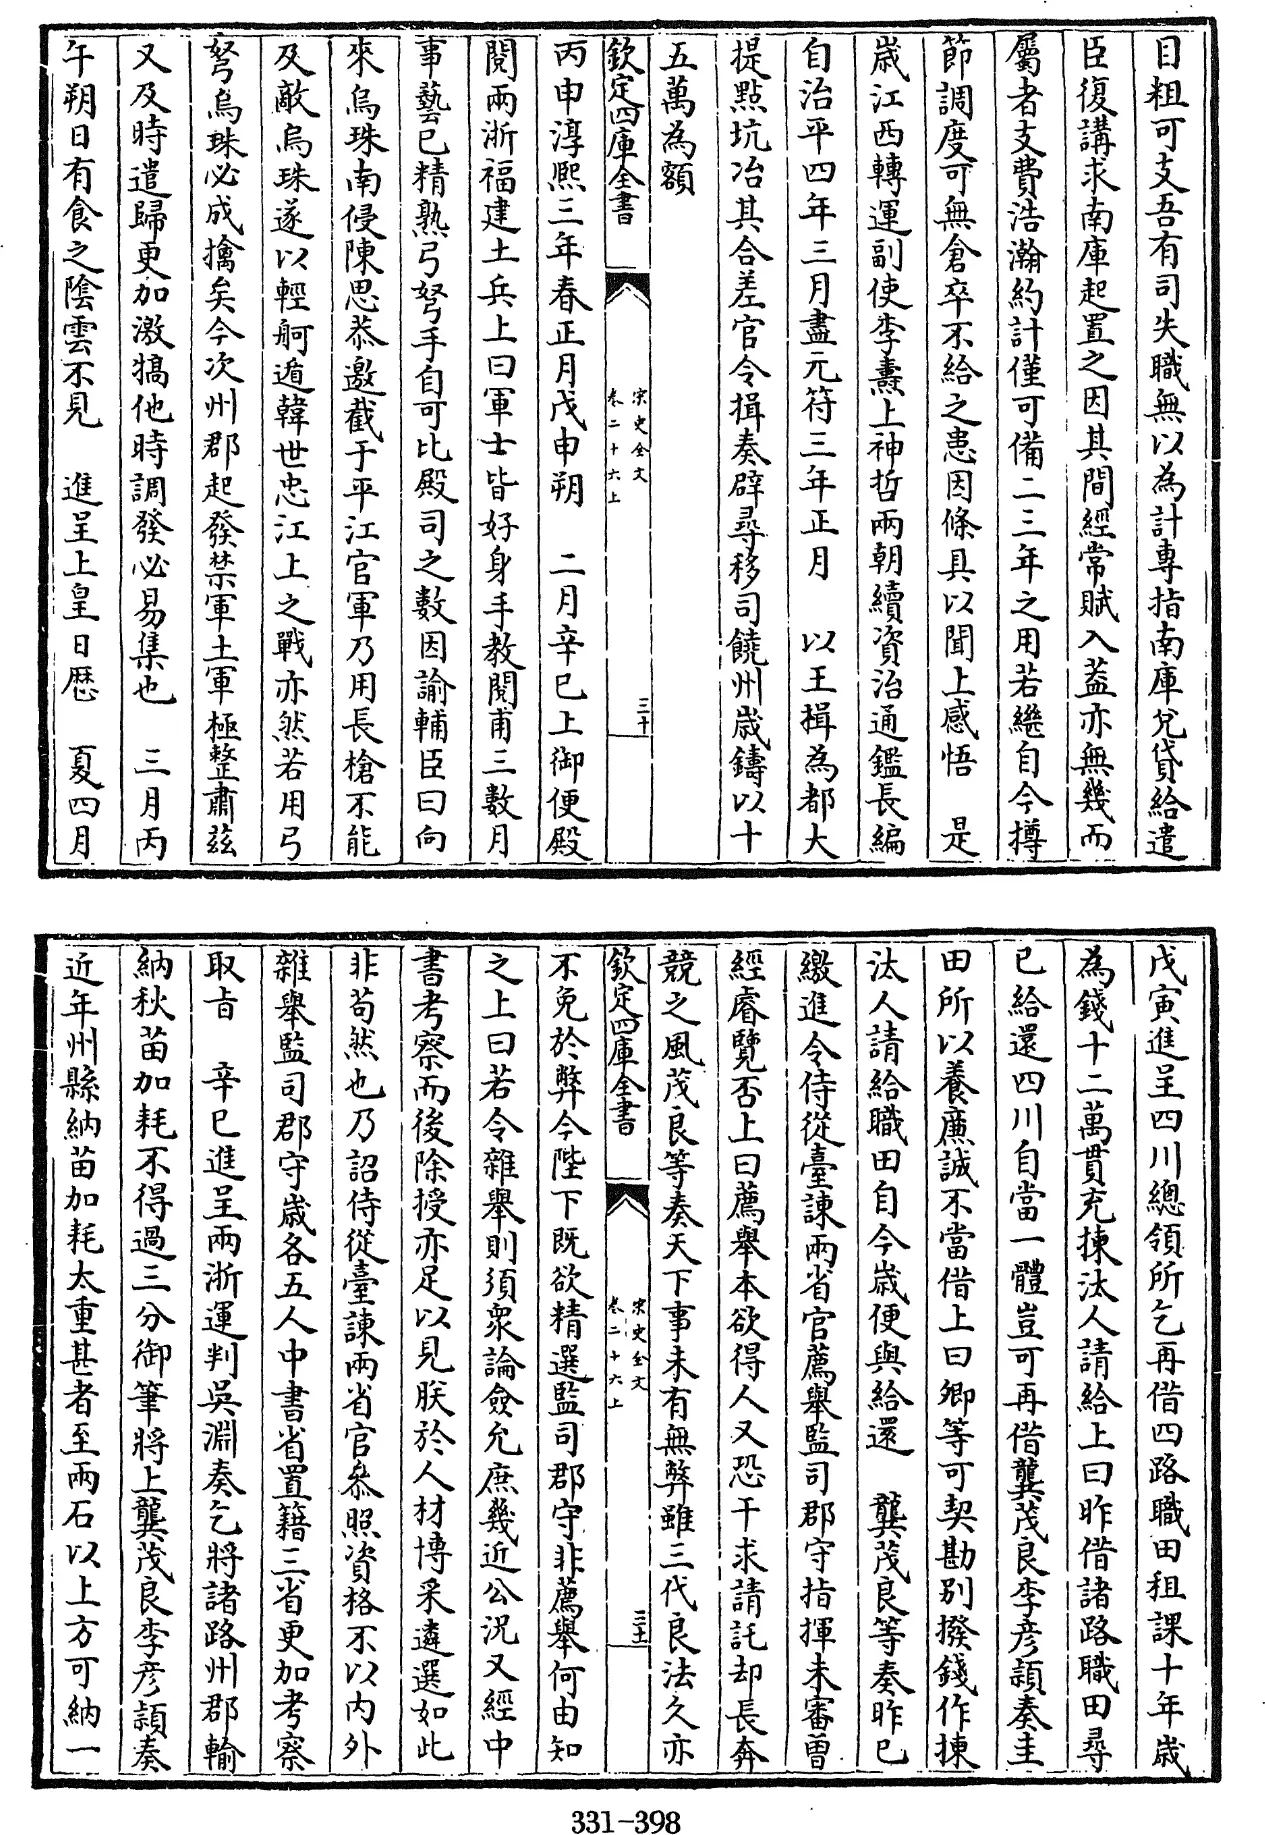 目粗可支吾有司失職無以為計專指南庫兌貸給遣
臣復講求南庫起置之因其間經常賦入葢亦無幾而
屬者支費浩瀚約計僅可備二三年之用若繼自今撙
節調度可無倉卒不給之患因條具以聞上感悟　是
歲江西轉運副使李燾上神哲兩朝續資治通鑑長編
自治平四年三月盡元符三年正月　以王揖為都大
提點坑冶其合差官令揖奏辟尋移司饒州歲鑄以十
五萬為額
欽定四庫全書　宋史全文　卷二十六上　三十
丙申淳熙三年春正月戊申朔　二月辛巳上御便殿
閱兩浙福建土兵上曰軍士皆好身手教閱甫三數月
事藝已精熟弓弩手自可比殿司之數因諭輔臣曰向
來烏珠南侵陳思恭邀截于平江官軍乃用長槍不能
及敵烏珠遂以輕舸遁韓世忠江上之戰亦然若用弓
弩烏珠必成擒矣今次州郡起發禁軍土軍極整肅茲
又及時遣歸更加激犒他時調發必易集也　三月丙
午朔日有食之陰雲不見　進呈上皇日歷　夏四月
戊寅進呈四川總領所乞再借四路職田租課十年歲
為錢十二萬貫充揀汰人請給上曰昨借諸路職田尋
已給還四川自當一體豈可再借龔茂良李彦頴奏圭
田所以養廉誠不當借上曰卿等可契勘别撥錢作揀
汰人請給職田自今歲便與給還　龔茂良等奏昨已
繳進令侍從臺諫兩省官薦舉監司郡守指揮未審曾
經睿覽否上曰薦舉本欲得人又恐干求請託却長奔
競之風茂良等奏天下事未有無弊雖三代良法久亦
欽定四庫全書　宋史全文　卷二十六上　三十一
不免於弊今陛下既欲精選監司郡守非薦舉何由知
之上曰若令雜舉則須衆論僉允庶幾近公況又經中
書考察而後除授亦足以見朕於人材博采遴選如此
非苟然也乃詔侍從臺諫兩省官叅照資格不以内外
雜舉監司郡守歲各五人中書省置籍三省更加考察
取旨　辛巳進呈兩浙運判吳淵奏乞將諸路州郡輸
納秋苗加耗不得過三分御筆將上龔茂良李彦頴奏
近年州縣納苗加耗太重甚者至兩石以上方可納一
331-398